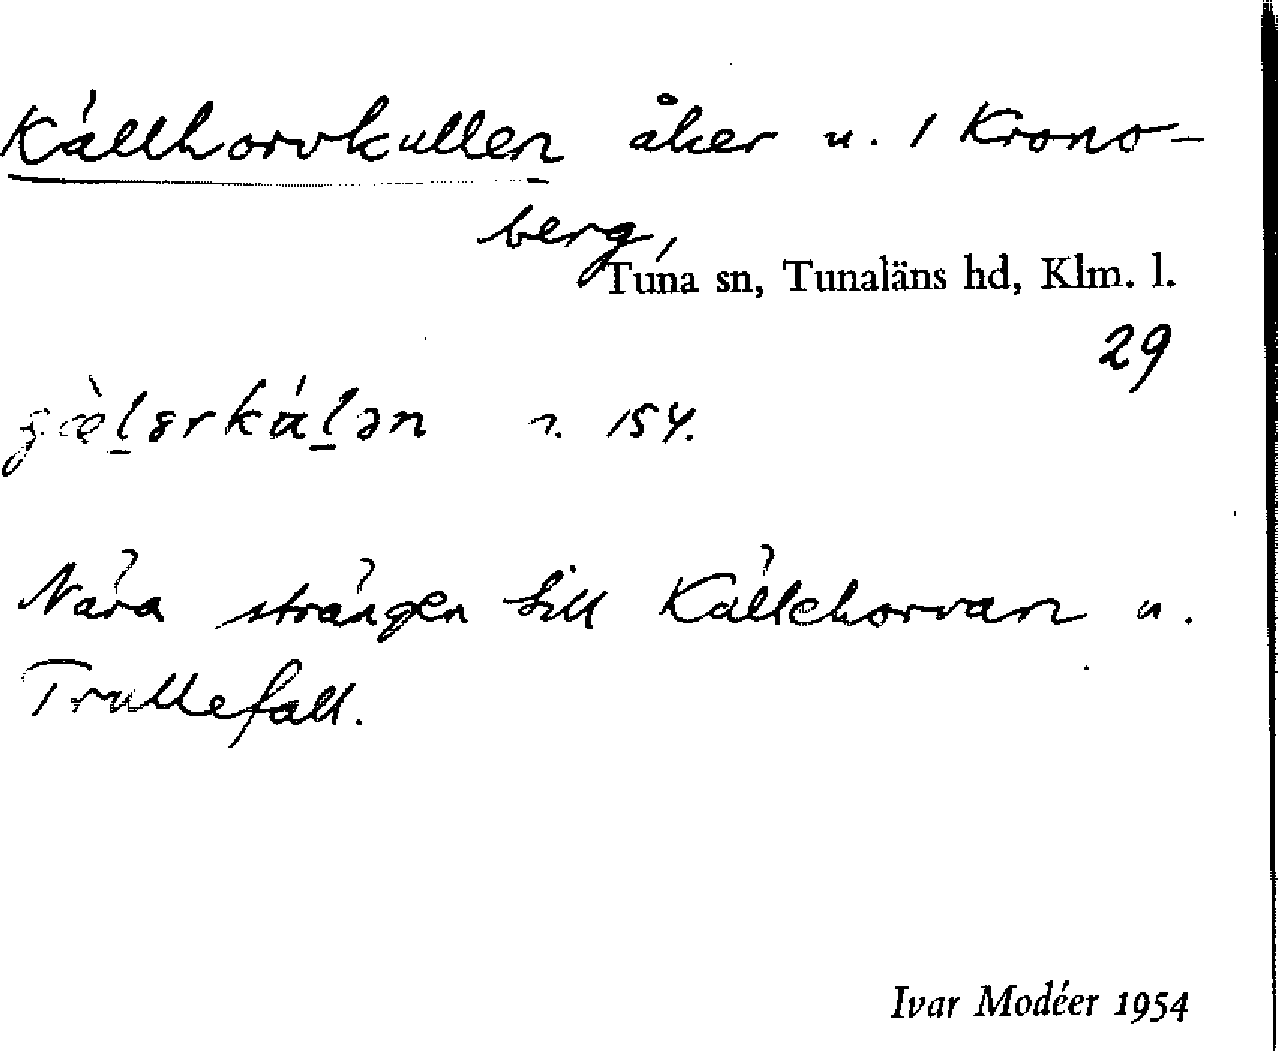 Källhorvkullen åker u. 1 Krono-
berg,
Tuna sn, Tunaläns hd, Klm. l.
29
n. 154.
Nära strängen till Källehorvan u.
Trullefall.
Ivar Modéer 1954